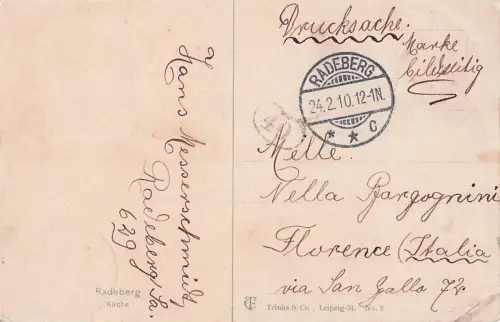 Hans Messerschmidt
Radeberg/Sa.
629 d
Radeberg
Kirche
Drucksache.
Marke
bildseitig
RADEBERG
24.2.10.12-1N.
* * c
Melle.
Nella Bargognini
Florence (Italia
via San Gallo 72.
Trinks & Co., Leipzig-St. No. 5